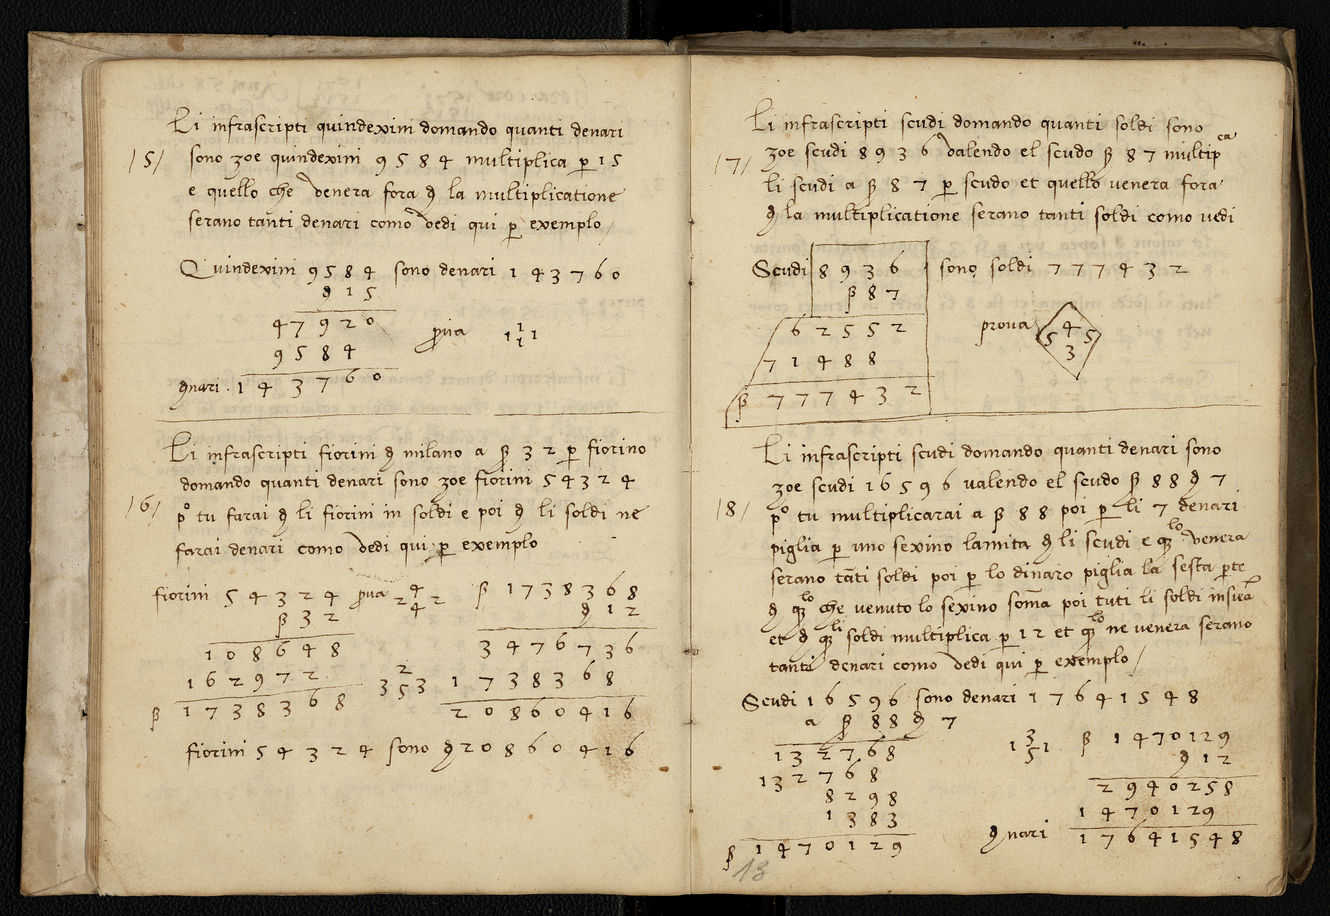 Li infrascripti quindexini domando quanti denari
/5/ sono zoe quindexini 9584 multiplica p 15
e quello che venera fora d la multiplicatione
serano tanti denari como vedi qui p exemplo/
Quindexini 9584 sono denari 143760
d 15
47920
prova 1 1 1 1
9584
dnari. 143760
Li infrascripti fiorini d milano a ß 32 p fiorino
domando quanti denari sono zoe fiorini 54324
/6/ po tu farai d li fiorini in soldi e poi d li soldi ne
farai denari como vedi qui p exemplo
fiorini 54324 prova 2 4 2 4
ß 32
108648
162972
ß 1738368
3 2 5 3
ß 1738368
d 12
3476736
1738368
20860416
fiorini 54324 sono d 20860416
Li infrascripti scudi domando quanti soldi sono
/7/ zoe scudi 8936 valendo el scudo ß 87 multipca
li scudi a ß 87 p scudo et quello venera fora
d la multiplicatione serano tanti soldi como vedi
Scudi 8936 sono soldi 777432
ß 87
62552
prova 4 5 5 3
71488
ß 777432
Li infrascripti scudi domando quanti denari sono
zoe scudi 16596 valendo el scudo ß 88 d 7
/8/ po tu multiplicarai a ß 88 poi p li 7 denari
piglia p uno sexino lamita d li scudi e qlo venera
serano tati soldi poi p lo dinaro piglia la sesta pte
d qlo che venuto lo sexino soma poi tuti li soldi insiea
et d qli soldi multiplica p 12 et qlo ne venera serano
tanti denari como vedi qui p exemplo/
Scudi 16596 sono denari 17641548
a ß 88 d 7
132768
132768
8298
1383
ß 1470129
1 3 5 1
ß 1470129
d 12
2940258
1470129
dnari 17641548
13